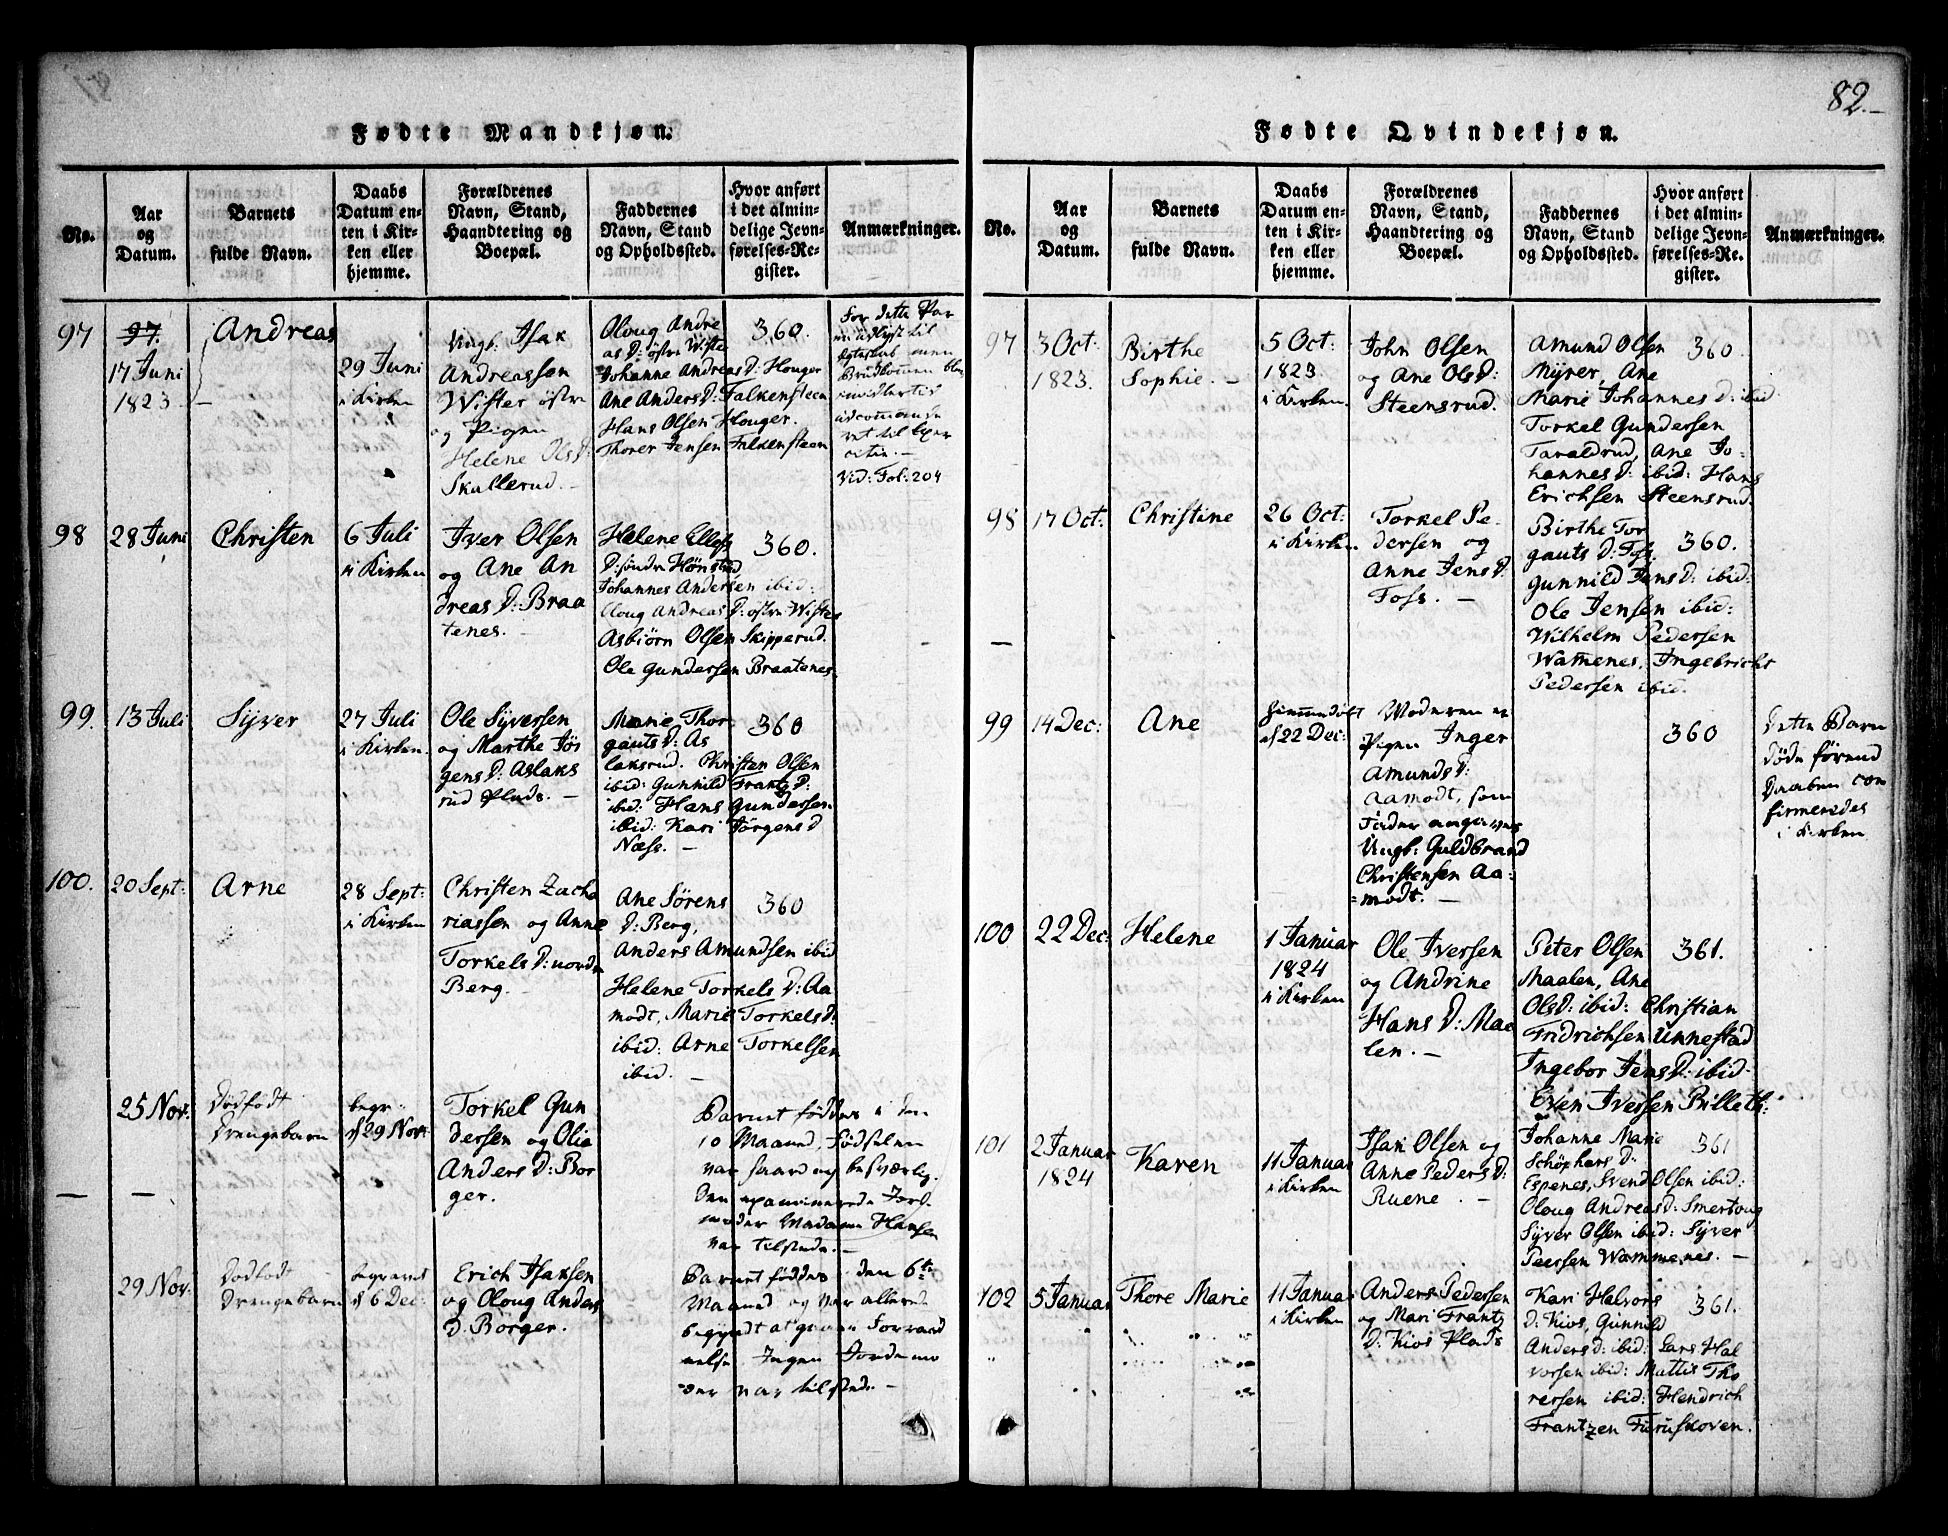 82.
Fødte Mandkjøn.
No.
Aar
og
Datum.
Barnets
fulde Navn.
Daabs
Datum en-
ten i Kir-
ken eller
hjemme.
Forældrenes
Navn, Stand,
Haandtering og
Boepæl.
Faddernes
Navn, Stand
og Opholdssted.
Hvor anført
i det almin-
delige Jevn-
førelses-Re-
gister.
Anmærkninger.
97
97.
17 Juni
1823
Andreas
29 Juni
i Kirken
Ungk: Isak
Andreassøn
Wister østre
og Pigen
Helene Ols D:
Skullerud.
Oloug Andre
as D: østre Wister
Johanne Andreas D: Houger
Ane Anders D: Falkensteen
Hans Olsen Houger.
Thorer Jensen Falkensteen
360.
For dette Par
til
Vid: Fol: 204
98
28 Juni
Christen
6 Juli
i Kirken
Iver Olsen
og Ane An
dreas D: Braa
tenes.
Helene Ellefs
D: søndre Hønstad
Johannes Andersen ibid:
Oloug Andreas D: østre Wister
Asbiørn Olsen Skipperud.
Ole Gundersen Braatenes
360.
99.
13 Juli
Syver
27 Juli
i Kirken
Ole Syversen
og Marthe Jør
gens D: Aslaks
rud Plads.
Marie Thor
gauts D: As
laksrud. Christen Olsen
ibid: Gunnild Frantz D:
ibid: Hans Gundersen
ibid: Kari Jørgens D
Næss.
360
100.
20 Sept:
Arne
28 Sept:
i Kirken
Christen Zacha
riassen og Anne
Torkels D: nordre
Berg.
Ane Sørens
D: Berg,
Anders Amundsen ibid
Helene Torkels D: Aa
modt, Marie Torkels D:
ibid: Arne Torkelsen
ibid.
360
25 Nov:
Dødfødt
Drengebarn
begr:
d 29 Nov:
Torkel Gun
dersen og Olia
Anders D: Bor
ger.
Barnet fødtes i den
10 Maaned, Fødselen
var haard og besværlig.
Den examinerede Jord
moder Madame Hansen
var tilstede.
29 Nov:
Dødfødt
Drengebarn
begravet
d 6 Dec:
Erich Isaksen
og Oloug Anders
D. Borger.
Barnet fødtes i den 6te
Maaned og var allerede
begyndt at gaae i Forraad
nelse. Ingen Jordemo
der var tilstede.
Fødte Qvindekjøn.
No.
Aar
og
Datum.
Barnets
fulde Navn.
Daabs
Datum en-
ten i Kir-
ken eller
hjemme.
Forældrenes
Navn, Stand,
Haandtering og
Boepæl.
Faddernes
Navn, Stand
og Opholdssted.
Hvor anført
i det almin-
delige Jevn-
førelses-Re-
gister.
Anmærkninger.
97
3 Oct:
1823.
Birthe
Sophie.
5 Oct:
1823.
i Kirken
John Olsen
og Ane Ols D:
Steensrud.
Amund Olsen
Myrer, Ane
Marie Johannes D: ibid
Torkel Gundersen
Taraldrud, Ane Jo-
hannes D: ibid: Hans
Erichsen Steensrud.
360.
98
17 Oct:
Christine
26 Oct:
i Kirken
Torkel Pe-
dersen og
Anne Jens D:
Foss.
Birthe Tor
gauts D: Foss.
Gunnild Jens D: ibid:
Ole Jensen ibid:
Wilhelm Pedersen
Wammenes, Ingebricht
Pedersen ibid.
360.
99
14 Dec:
Ane
hiemmedøbt
d 22 Dec:
Moderen er
Pigen Inger
Amunds D:
Aamodt, som
Fader angives
Ungk: Guldbrand
Christensen Aa-
modt.
360
Dette Barn
døde førend
Daaben con
firmeredes
i Kirken
100
22 Dec:
Helene
1 Januar
1824
i Kirken
Ole Iversen
og Andrine
Hans D: Maa
len.
Peter Olsen
Maalen, Ane
Ols D: ibid: Christian
Fridrichsen Unnestad
Ingebor Jens D: ibid.
Even Iversen Billeth:
361.
101
2 Januar
1824
Karen
11 Januar
i Kirken
Isak Olsen og
Anne Peders D:
Ruene.
Johanne Marie
Schøphers D:
Espenes, Svend Olsen ibid:
Oloug Andreas D: Smertoug
Syver Olsen ibid: Syver
Peersen Wammenes.
361
102
5 Januar
Thore Marie
11 Januar
i Kirken
Anders Pedersen
og Mari Frantz
D: Kios Plads
Kari Halvors
D: Kios, Gunnild
Anders D: ibid: Lars Hal
vorsen ibid: Mattis Tho
rersen ibid: Hendrich
Frantzen Furuskoven.
361.